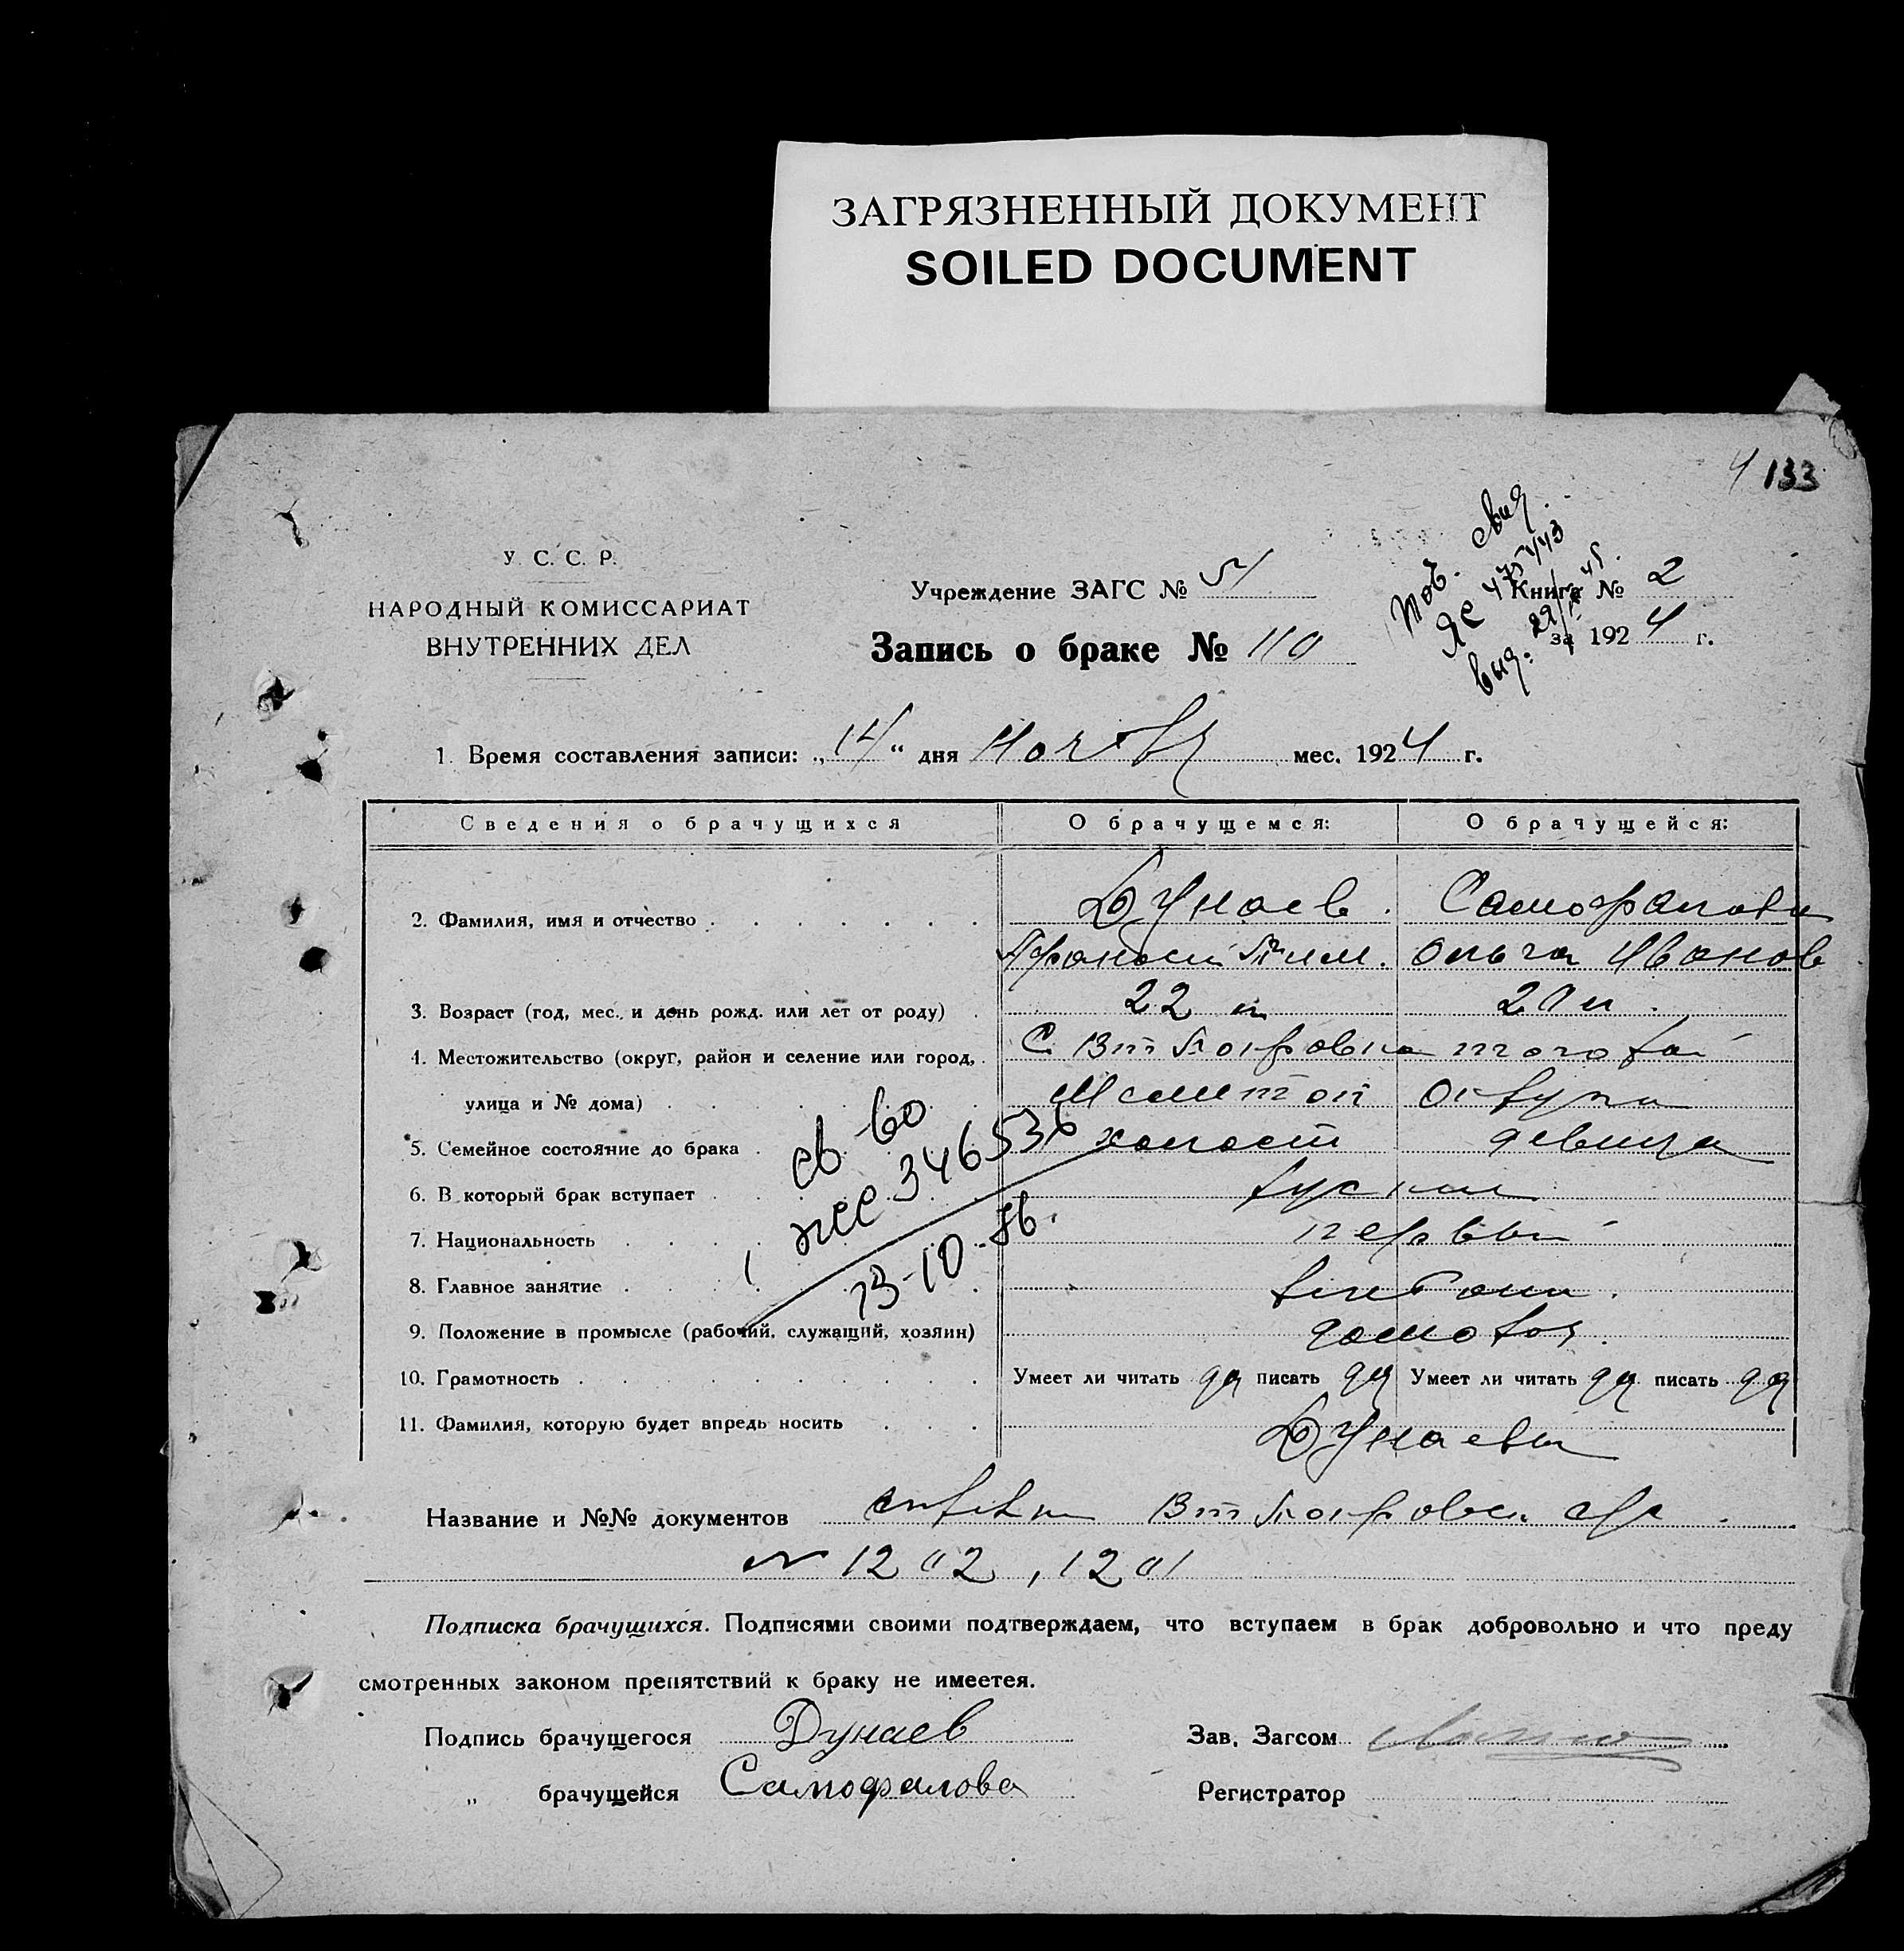 ЗАГРЯЗНЕННЫЙ ДОКУМЕНТ
SOILED DOCUMENT
133
У. С. С. Р.
НАРОДНЫЙ КОМИССАРИАТ
ВНУТРЕННИХ ДЕЛ
Учреждение ЗАГС №
Запись о браке № 110
Книга № 2
за 1924 г.
Яс 475443
1. Время составления записи: „14“ дня Ноября мес. 1924 г.
Сведения о брачущихся
О брачущемся:
О брачущейся:
2. Фамилия, имя и отчество
Дунаев
Самофалова
Ольга Иванов
3. Возраст (год, мес. и день рожд. или лет от роду)
22 л
20 л.
4. Местожительство (округ, район и селение или город,
улица и № дома)
с. Вт Покровка
Округа
5. Семейное состояние до брака
холост
девица
6. В который брак вступает
русские
7. Национальность
первый
8. Главное занятие
9. Положение в промысле (рабочий, служащий, хозяин)
10. Грамотность
Умеет ли читать да писать да
Умеет ли читать да писать да
11. Фамилия, которую будет впредь носить
Дунаевы
св-во
346536
13-10-
Название и №№ документов Вт Покровск. с/с
№ 1202, 1201
Подписка брачущихся. Подписями своими подтверждаем, что вступаем в брак добровольно и что преду
смотренных законом препятствий к браку не имеетея.
Подпись брачущегося Дунаев
„ брачущейся Самофалова
Зав. Загсом
Регистратор